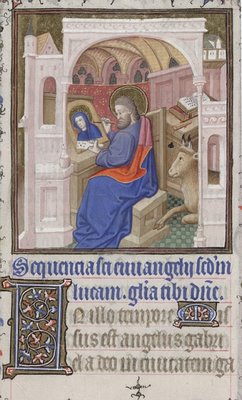 Sequencia sci euuangelij scd'm
lucam. glia tibi dñe.
IN illo tempore Mis
sus est angelus gabri
el a deo in ciuitatem ga